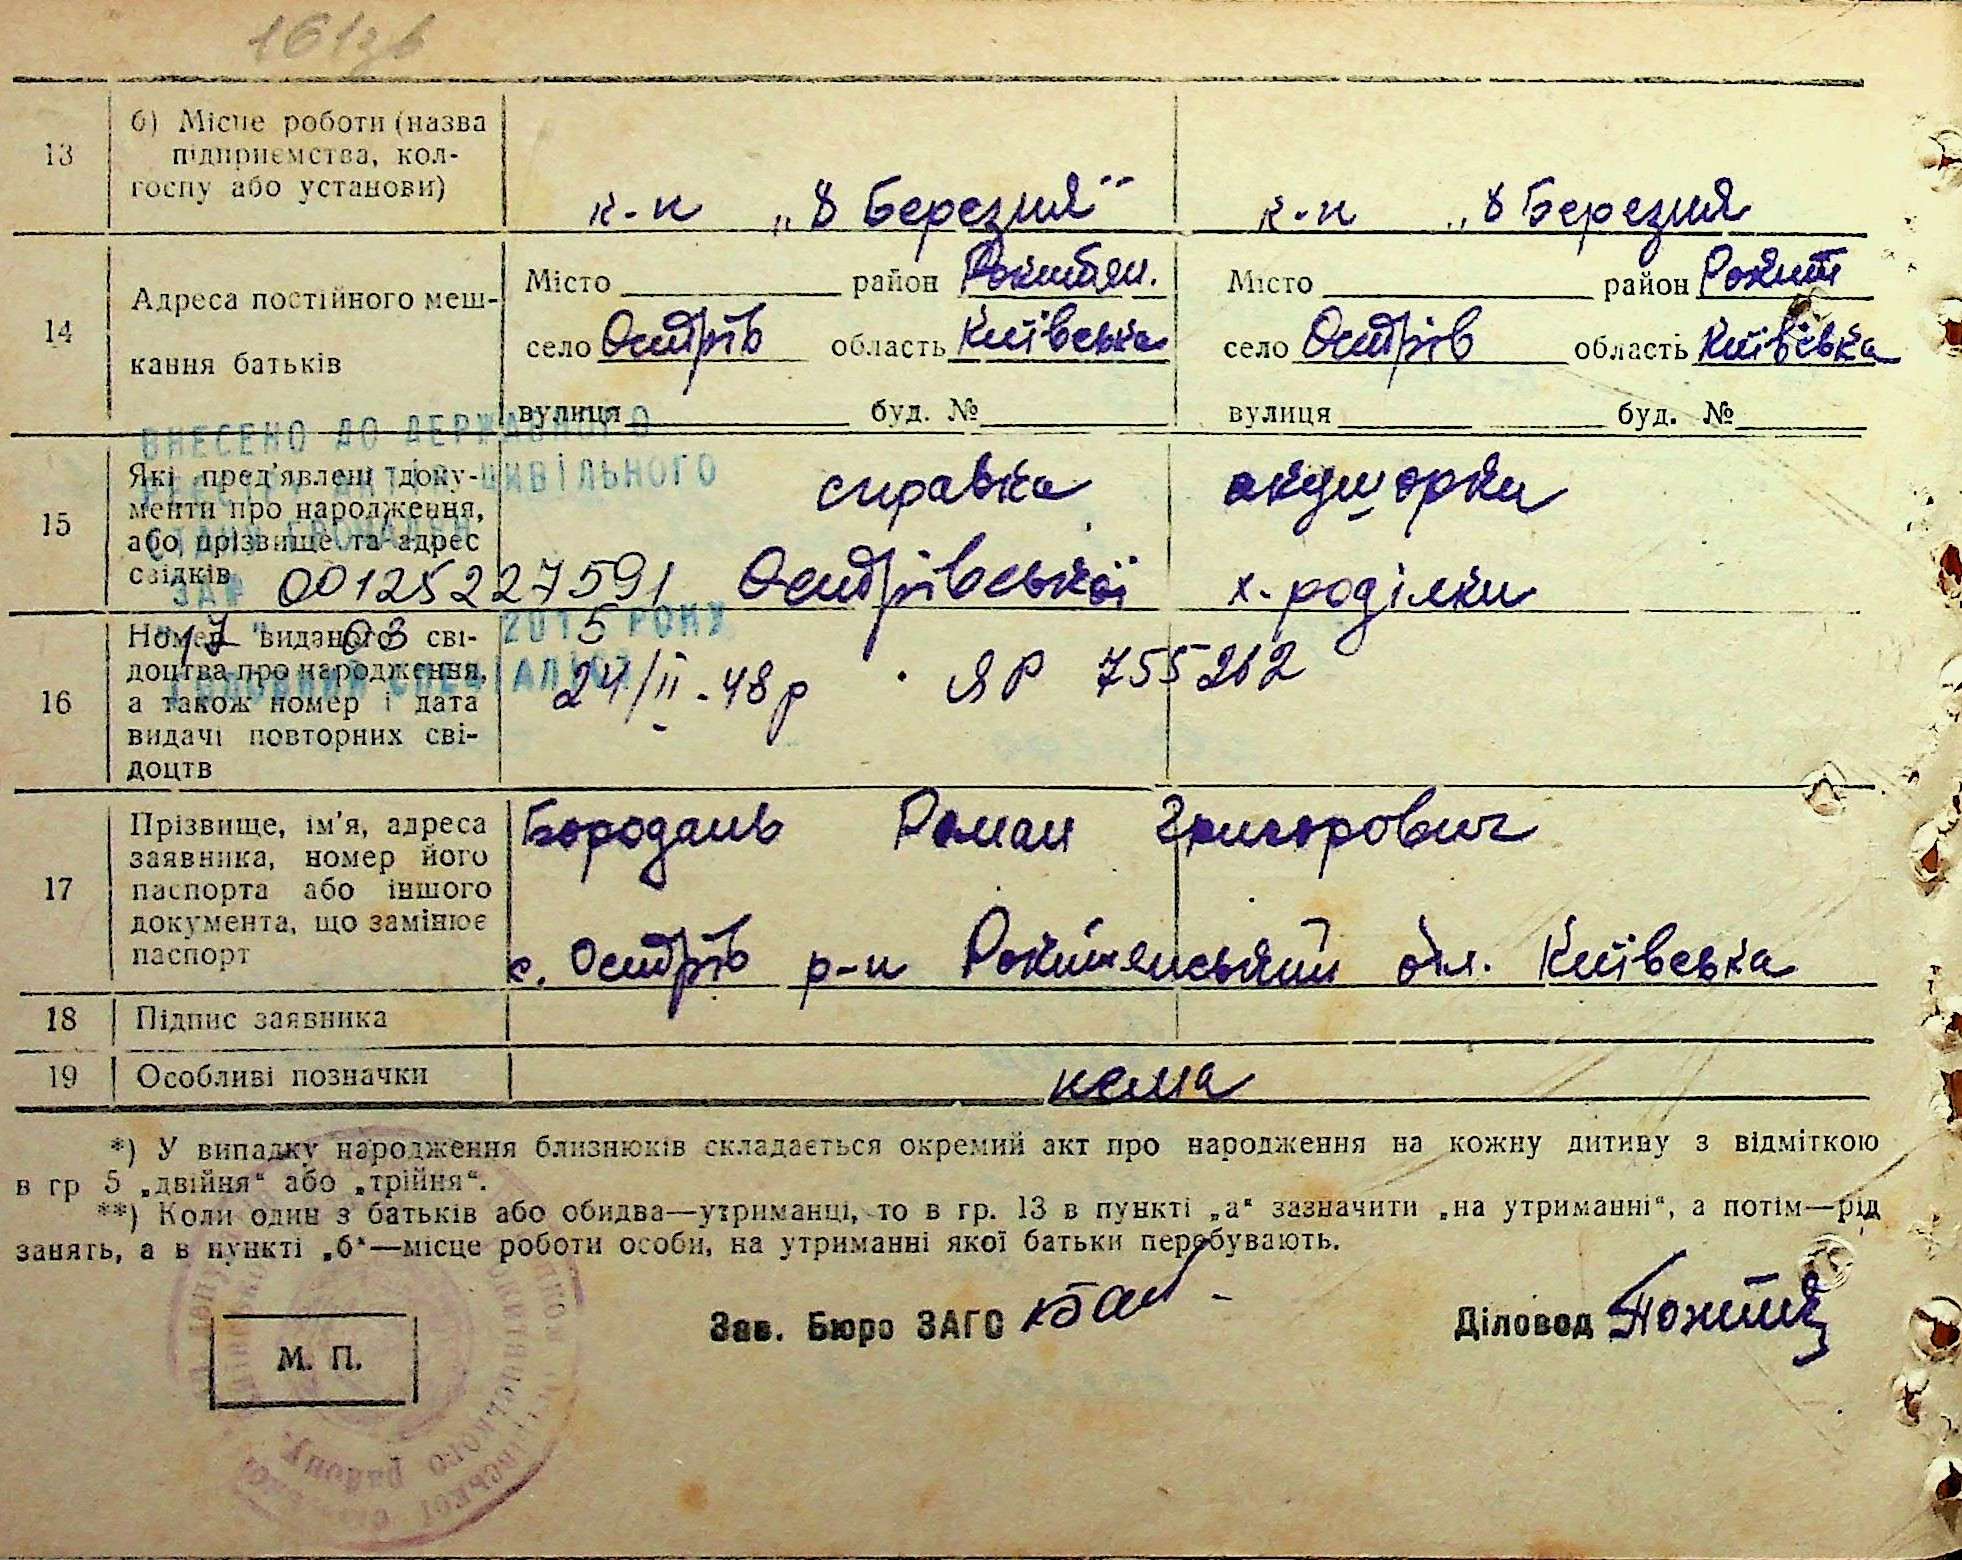 161зв
13 б) Місце роботи (назва
підприємства, кол-
госпу або установи)
к-п „8 Березня" к-п „8 Березня
14 Адреса постійного меш-
кання батьків
Місто район Рокитян. Місто район Рокит
село Острів область Київська село Острів область Київська
вулиця буд. № вулиця буд. №
ВНЕСЕНО ДО ДЕРЖАВНОГО
РЕЄСТРУ АКТІВ ЦИВІЛЬНОГО
СТАНУ ГРОМАДЯН
ЗА № 00125227591
17 03 2015 РОКУ
ГОЛОВНИЙ СПЕЦІАЛІСТ
15 Які пред'явлені доку-
менти про народження,
або прізвище та адрес
свідків
справка акушорки
Острівської х. роділки
16 Номер виданого сві-
доцтва про народження,
а також номер і дата
видачі повторних сві-
доцтв
24/II-48р ЯР 755262
17 Прізвище, ім'я, адреса
заявника, номер його
паспорта або іншого
документа, що замінює
паспорт
Бородань Роман Григорович
с. Острів р-н Рокитянський обл. Київська
18 Підпис заявника
19 Особливі позначки нема
*) У випадку народження близнюків складається окремий акт про народження на кожну дитину з відміткою
в гр 5 „двійня" або „трійня".
**) Коли один з батьків або обидва—утриманці, то в гр. 13 в пункті „а" зазначити „на утриманні", а потім—рід
занять, а в пункті „б"—місце роботи особи, на утриманні якої батьки перебувають.
М. П.
Зав. Бюро ЗАГС
Діловод